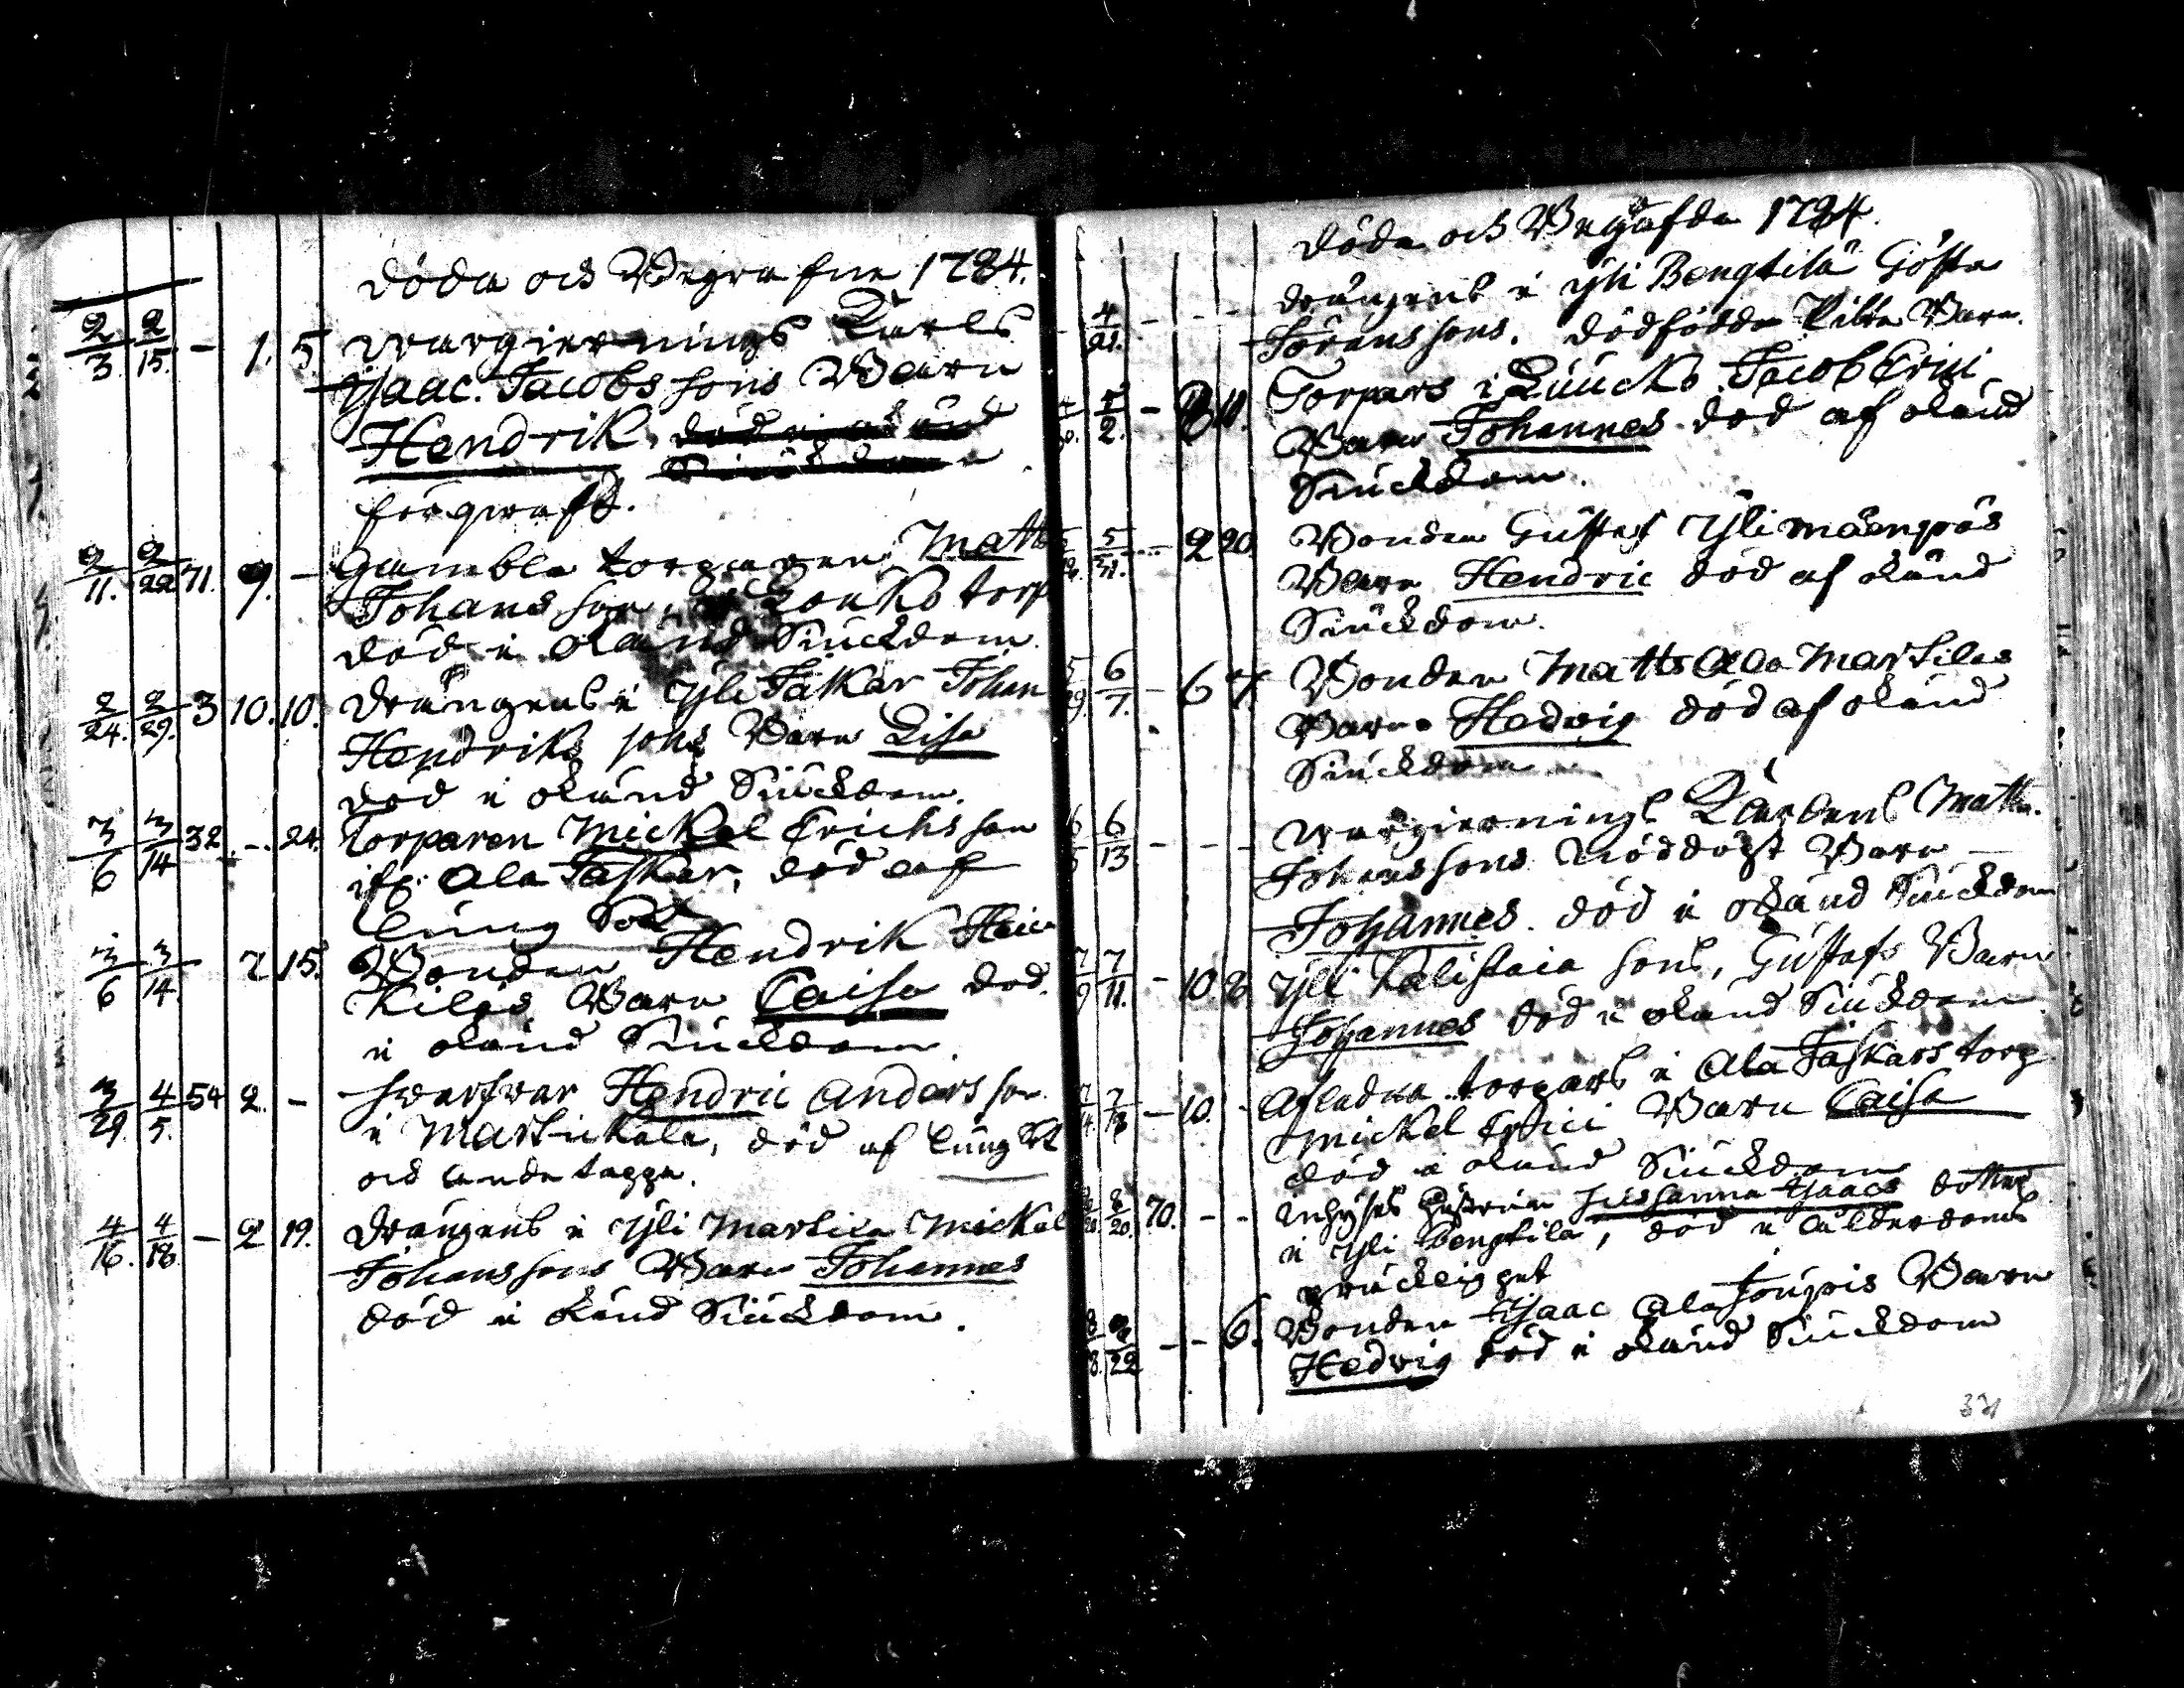 Döda och Begrafne 1784.
2/3. 2/15. – 1. 5. wargiernings Karls
Isaac Jacobs sons Barn
Hendrik,
förqwafd.
2/11. 2/22 71. 9. – Gamble torparen Matts
Johans son, torp
död i okänd Siuckdom.
2/24. 2/29. 3 10. 10. Drängens i Yli Jäskar Johan
Hendriks sons Barn Lisa
död i okänd Siuckdom.
3/6 3/14 32 – 24. Torparen Mickel Erichs son
Ala Jaskar, död af
lung Sot
3/6 3/14. – 2 15. Bonden Hendrik Hei
Kiläs Barn Caisa död.
i okänd Siuckdom.
3/29. 4/5. 54 2. – Swarfwar Hendric Anders son
i Martikala, död af lung Sot
och andetäppa.
4/16. 4/18. – 2 19. Drängens i Yli Martila Mickel
Johans sons Barn Johannes
död i okänd Siuckdom.
Döda och Begrafda 1784.
4/21. – – – drängens i Yli Bengtilä Gösta
Görans sons. dödfödda Pilte Barn.
5/2. – Torpars i Juucko Jacob Erici
Barn Johannes död af okänd
Siuckdom.
5/31. – 2 20. Bonden Gustaf Yli mäenpäs
Barn Hendric död af okänd
Siuckdom.
5/29. 6/7. – 6 7. Bonden Matts Ala Martilas
Barn Hedwig död af okänd
Siuckdom
6/13 – – – wargiernings Karlens Matts
Johans sons nöddöpt Barn
Johannes. död i okänd Siuckdom
7/9 7/11. – 10. 8. Yli Kalistaia sons, Gustafs Barn
Johannes död i okänd Siuckdom.
– 10. – Afledna torpars i Ala Jäskars torp
Mickel Erici Barn Caisa
död i okänd Siuckdom
8/20. 70. – – Inhyses Hustrun Susanna Isaacs dotter
i Yli Bengtila, död i ålderdoms
bräcklighet
– – 6. Bonden Isaac Ala Barn
Hedwig död i okänd Siuckdom